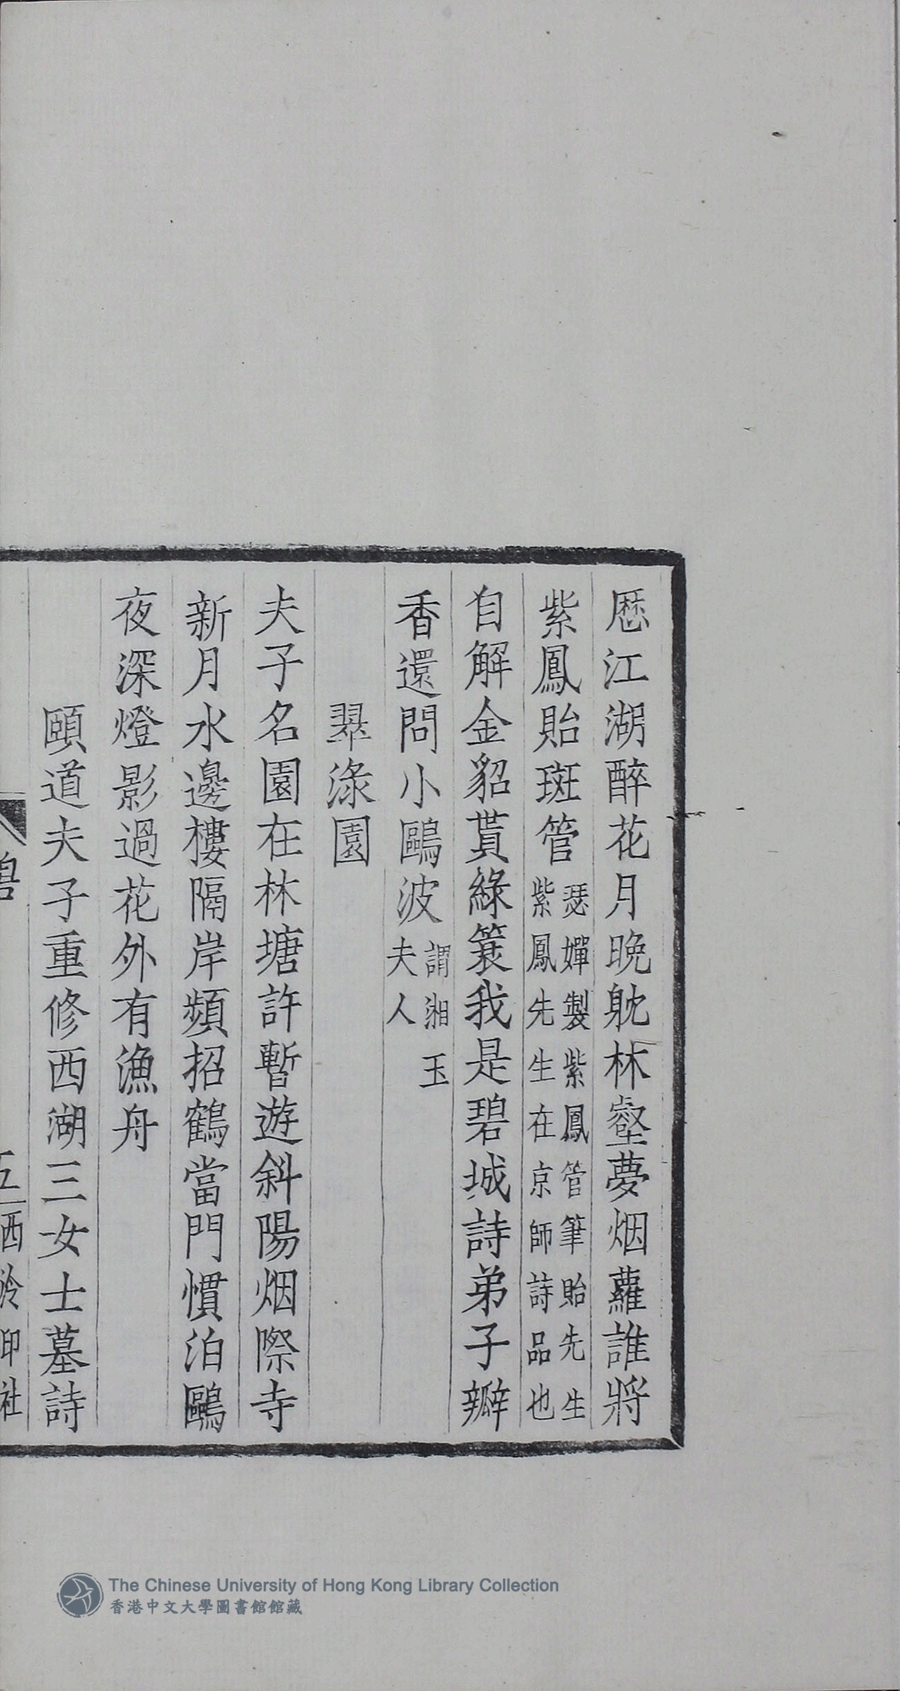 厯江湖醉花月晚躭林壑夢烟蘿誰將
紫鳳貽斑管瑟嬋製紫鳳管筆貽先生紫鳳先生在京師詩品也
自解金貂貰綠蓑我是碧城詩弟子瓣
香還問小鷗波謂湘玉夫人
翠淥園
夫子名園在林塘許暫遊斜陽烟際寺
新月水邊樓隔岸頻招鶴當門慣泊鷗
夜深燈影過花外有漁舟
頤道夫子重修西湖三女士墓詩
五西泠印社
The Chinese University of Hong Kong Library Collection
香港中文大學圖書館館藏